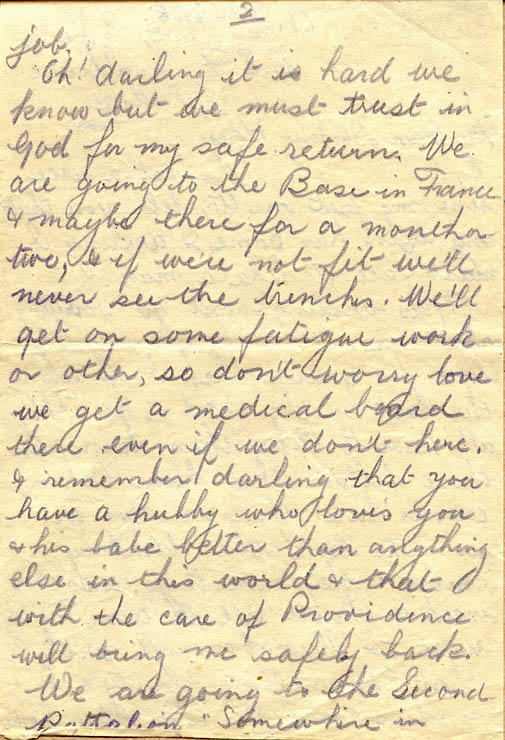 2
job.
Oh! darling it is hard we
know but we must trust in
God for my safe return. We
are going to the Base in France
& maybe there for a month or
two, & if we're not fit we'll
never see the trenches. We'll
get on some fatigue work
or other, so don't worry love
we get a medical board
there even if we don't here.
& remember darling that you
have a hubby who loves you
& his babe better than anything
else in this world & that
with the care of Providence
will bring me safely back.
We are going to the Second
Battalion "Somewhere in